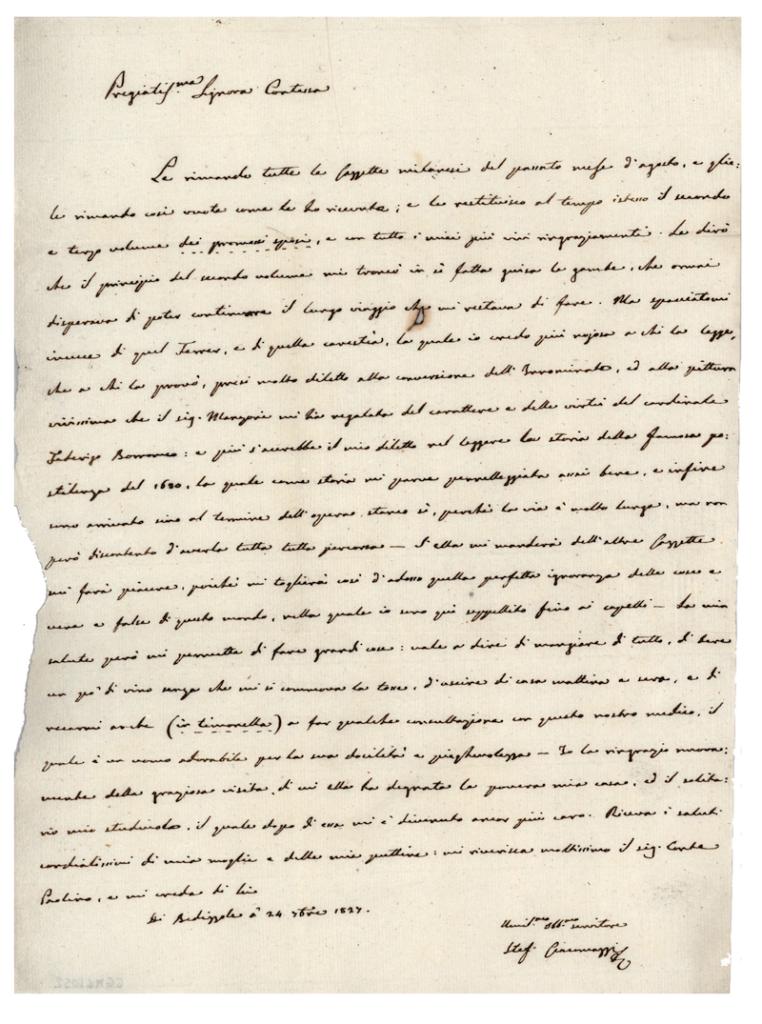 Pregiatis.ma Signora Contessa
Le rimando tutte le Gazzette milanesi del passato mese d'agosto, e glie=
le rimando così vuote come le ho ricevute; e le restituisco al tempo istesso il secondo
e terzo volume dei promessi sposi, e con tutto i miei più vivi ringraziamenti. Le dirò
che il principio del secondo volume mi troncò in sì fatta guisa le gambe, che ormai
disperava di poter continuare il lungo viaggio che mi restava di fare. Ma spacciatomi
invece di quel Ferrer, e di quella carestia, la quale io credo più nojosa a chi la legge,
che a chi la provò, presi molto diletto alla conversione dell'Innominato, ed alla pittura
vivissima che il sig. Manzoni mi ha regalata del carattere e delle virtù del cardinale
Federigo Borromeo: e più s'accrebbe il mio diletto nel leggere la storia della famosa pe=
stilenza del 1630, la quale come storia mi parve pennelleggiata assai bene, e infine
sono arrivato sino al termine dell'opera stanco sì, perchè la via è molto lunga, ma non
però discontento d'averla tutta tutta percorsa — S'ella mi manderà dell'altre Gazzette
mi farà piacere, poichè mi toglierà così d'adosso quella perfetta ignoranza delle cose e
vere e false di questo mondo, nella quale io sono qui seppellito fino ai capelli — La mia
salute però mi permette di fare grandi cose: vale a dire di mangiare di tutto, di bere
un pò di vino senza che mi si commova la tosse, d'uscire di casa mattina e sera, e di
recarmi anche (in timonella) a far qualche consultazione con questo nostro medico, il
quale è un uomo adorabile per la sua docilità e pieghevolezza — Io la ringrazio nuova=
mente della graziosa visita, di cui ella ha degnata la povera mia casa, ed il solita=
rio mio studiolo, il quale dopo di essa mi è divenuto ancor più caro. Riceva i saluti
cordialissimi di mia moglie e delle mie puttine: mi riverisca moltissimo il sig. Conte
Paolino, e mi creda di lei
Di Bedizzole a' 24 7bre 1827.
Umil.mo Obb.mo servitore
Stef. Giacomazzi